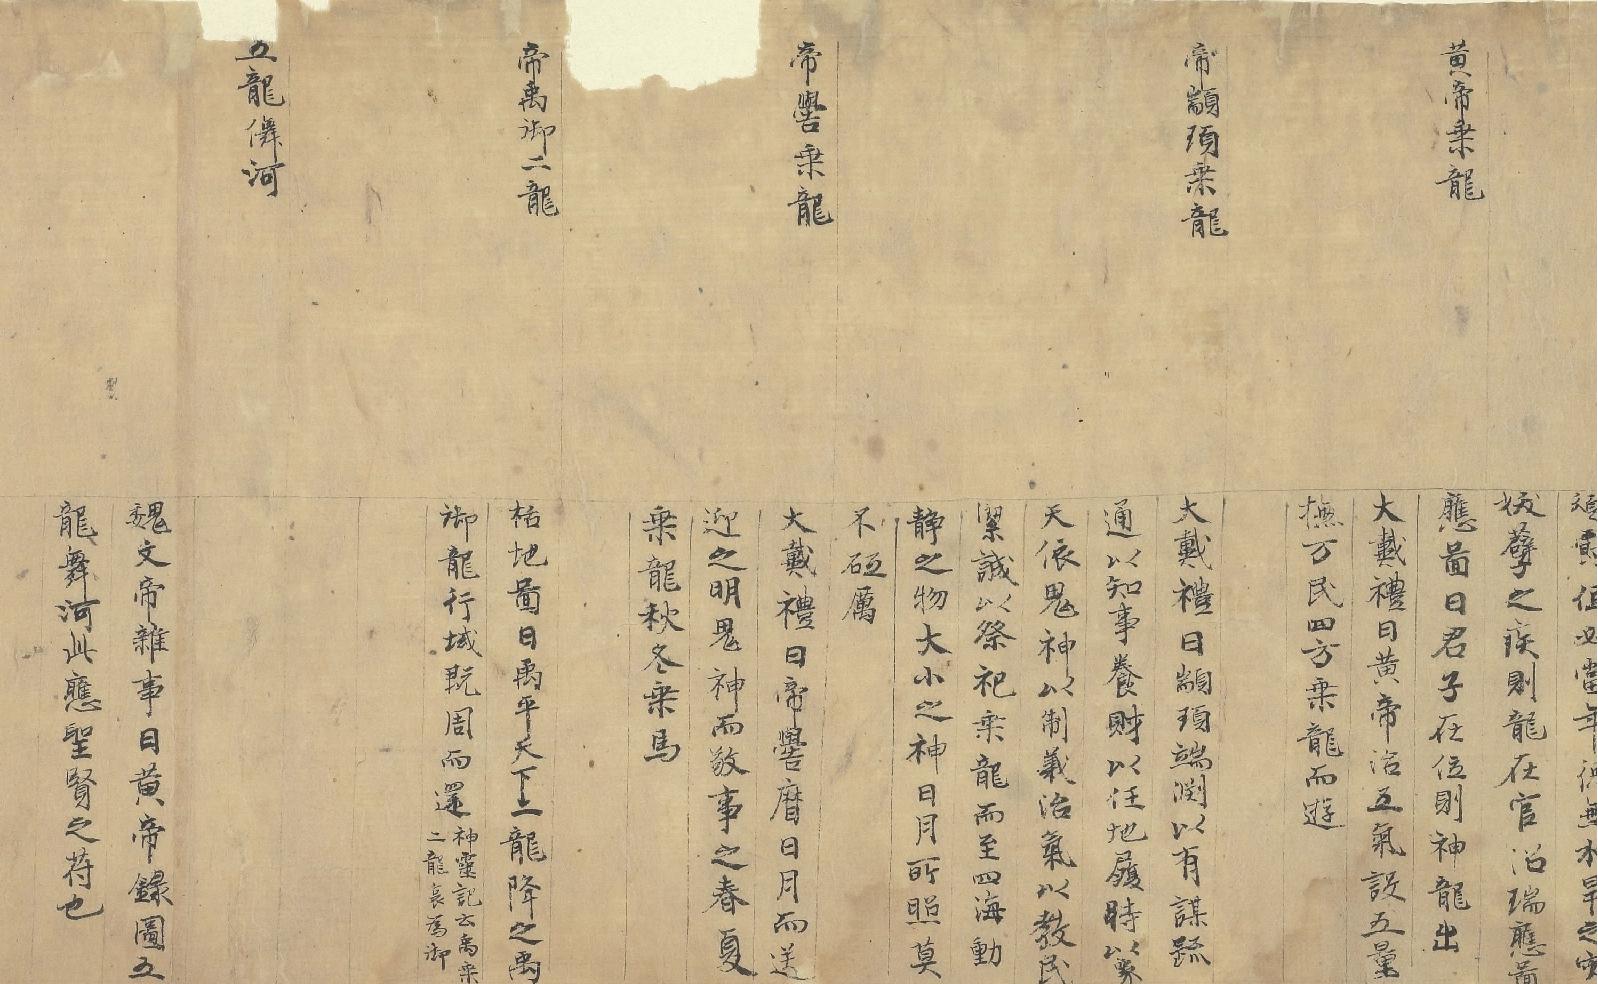 黄帝乗龍
帝顓頊乗龍
帝嚳乗龍
帝禹御二龍
五龍儛河
值必當年 無水旱之
孽之疾則龍在官沼瑞應啚
應啚曰君子在位則神龍出
大戴禮曰黄帝治五氣設五量
撫万民四方乗龍而遊
大戴禮曰顓頊端渕以有謀䟽
通以知事養財以任地履時以象
天依鬼神以制義治氣以教民
潔誠以祭祀乗龍而至四海動
静之物大小之神日月所照莫
不砥厲
大戴禮曰帝嚳曆日月而送
迎之明鬼神而敬事之春夏
乗龍秋冬乗馬
栝地啚曰禹平天下二龍降之禹
御龍行域既周而還
神靈記云禹乗
二龍哀為御
魏文帝雜事曰黄帝錄圖五
龍舞河此應聖賢之苻也